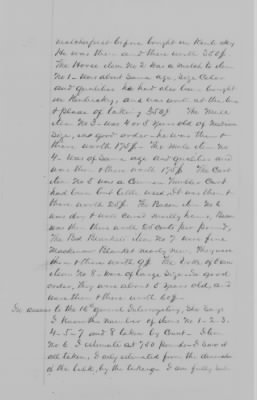 matcherfirst before bought in Kentucky
He was then and there worth 350$.
The Horse item No 2 was a match to item
No 1 - Was about same age, Size Color
and qualities he had also been bought
in Kentucky, and was worth at the time
& place of taking 350$. The Mule
item No 3 - was 7 or 8 years old of medium
Size, and good order - he was then &
there worth 175$. The Mule item No
4 - Was of same age and qualities and
was then & there worth 175$. The Cart
item No 5 was a Common Tumbler Cart
had been but little used, it was then &
there worth 25$. The Bacon item No 6
was dry & well Cured mostly hams, Bacon
was then there worth 25 cents per pound,
The Bed Blankets item No 7 were fine
Mackinaw Blankets nearly new, They were
then & there worth 9$. The Yoke of Oxen
item No 8 - were of large Size - in good
order, They were about 6 years old, and
were then & there worth 60$.
In answer to the 16th general Interrogatory, She Says
I know the number of items Nos 1-2-3-
4-5-7 and 8 taken by Count - Item
No 6 I estimate at 760 pounds - I saw it
all taken, I only estimated from the
of the bulk, by the taking I am fully